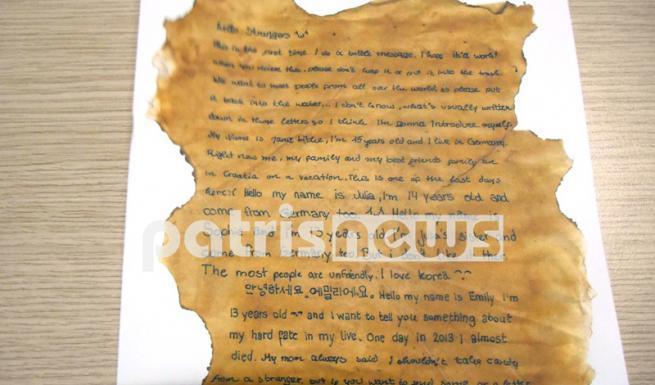 hello Strangers
This is the first time I do a bottle message. I hope it'll work!
when you recieve this, please don't keep it or put it into the trash.
We want to meet people from all over the world so please put
it back into the water... I don't know, what's usually written
down in those letters so I think I'm gonna introduce myself.
My Name is I'm 15 years old and I live in Germany.
Right now me, my family and my best friends family are
in Croatia on a vacation. This is one of the last days
here:( Hello my name is Julia, I'm 14 years old and
come from Germany too. Hello my name is
Sophie and I'm 13 years old I'm sister and
come from Germany too. But I don't like
The most people are unfriendly. I love Korea ^^
안녕하세요. 에밀리에요. Hello my name is Emily I'm
13 years old and I want to tell you something about
my hard fate in my live. One day in 2013 I almost
died. My mom always said I shouldn't take candy
from a stranger, but if you want to send some or a letter
patrisnews